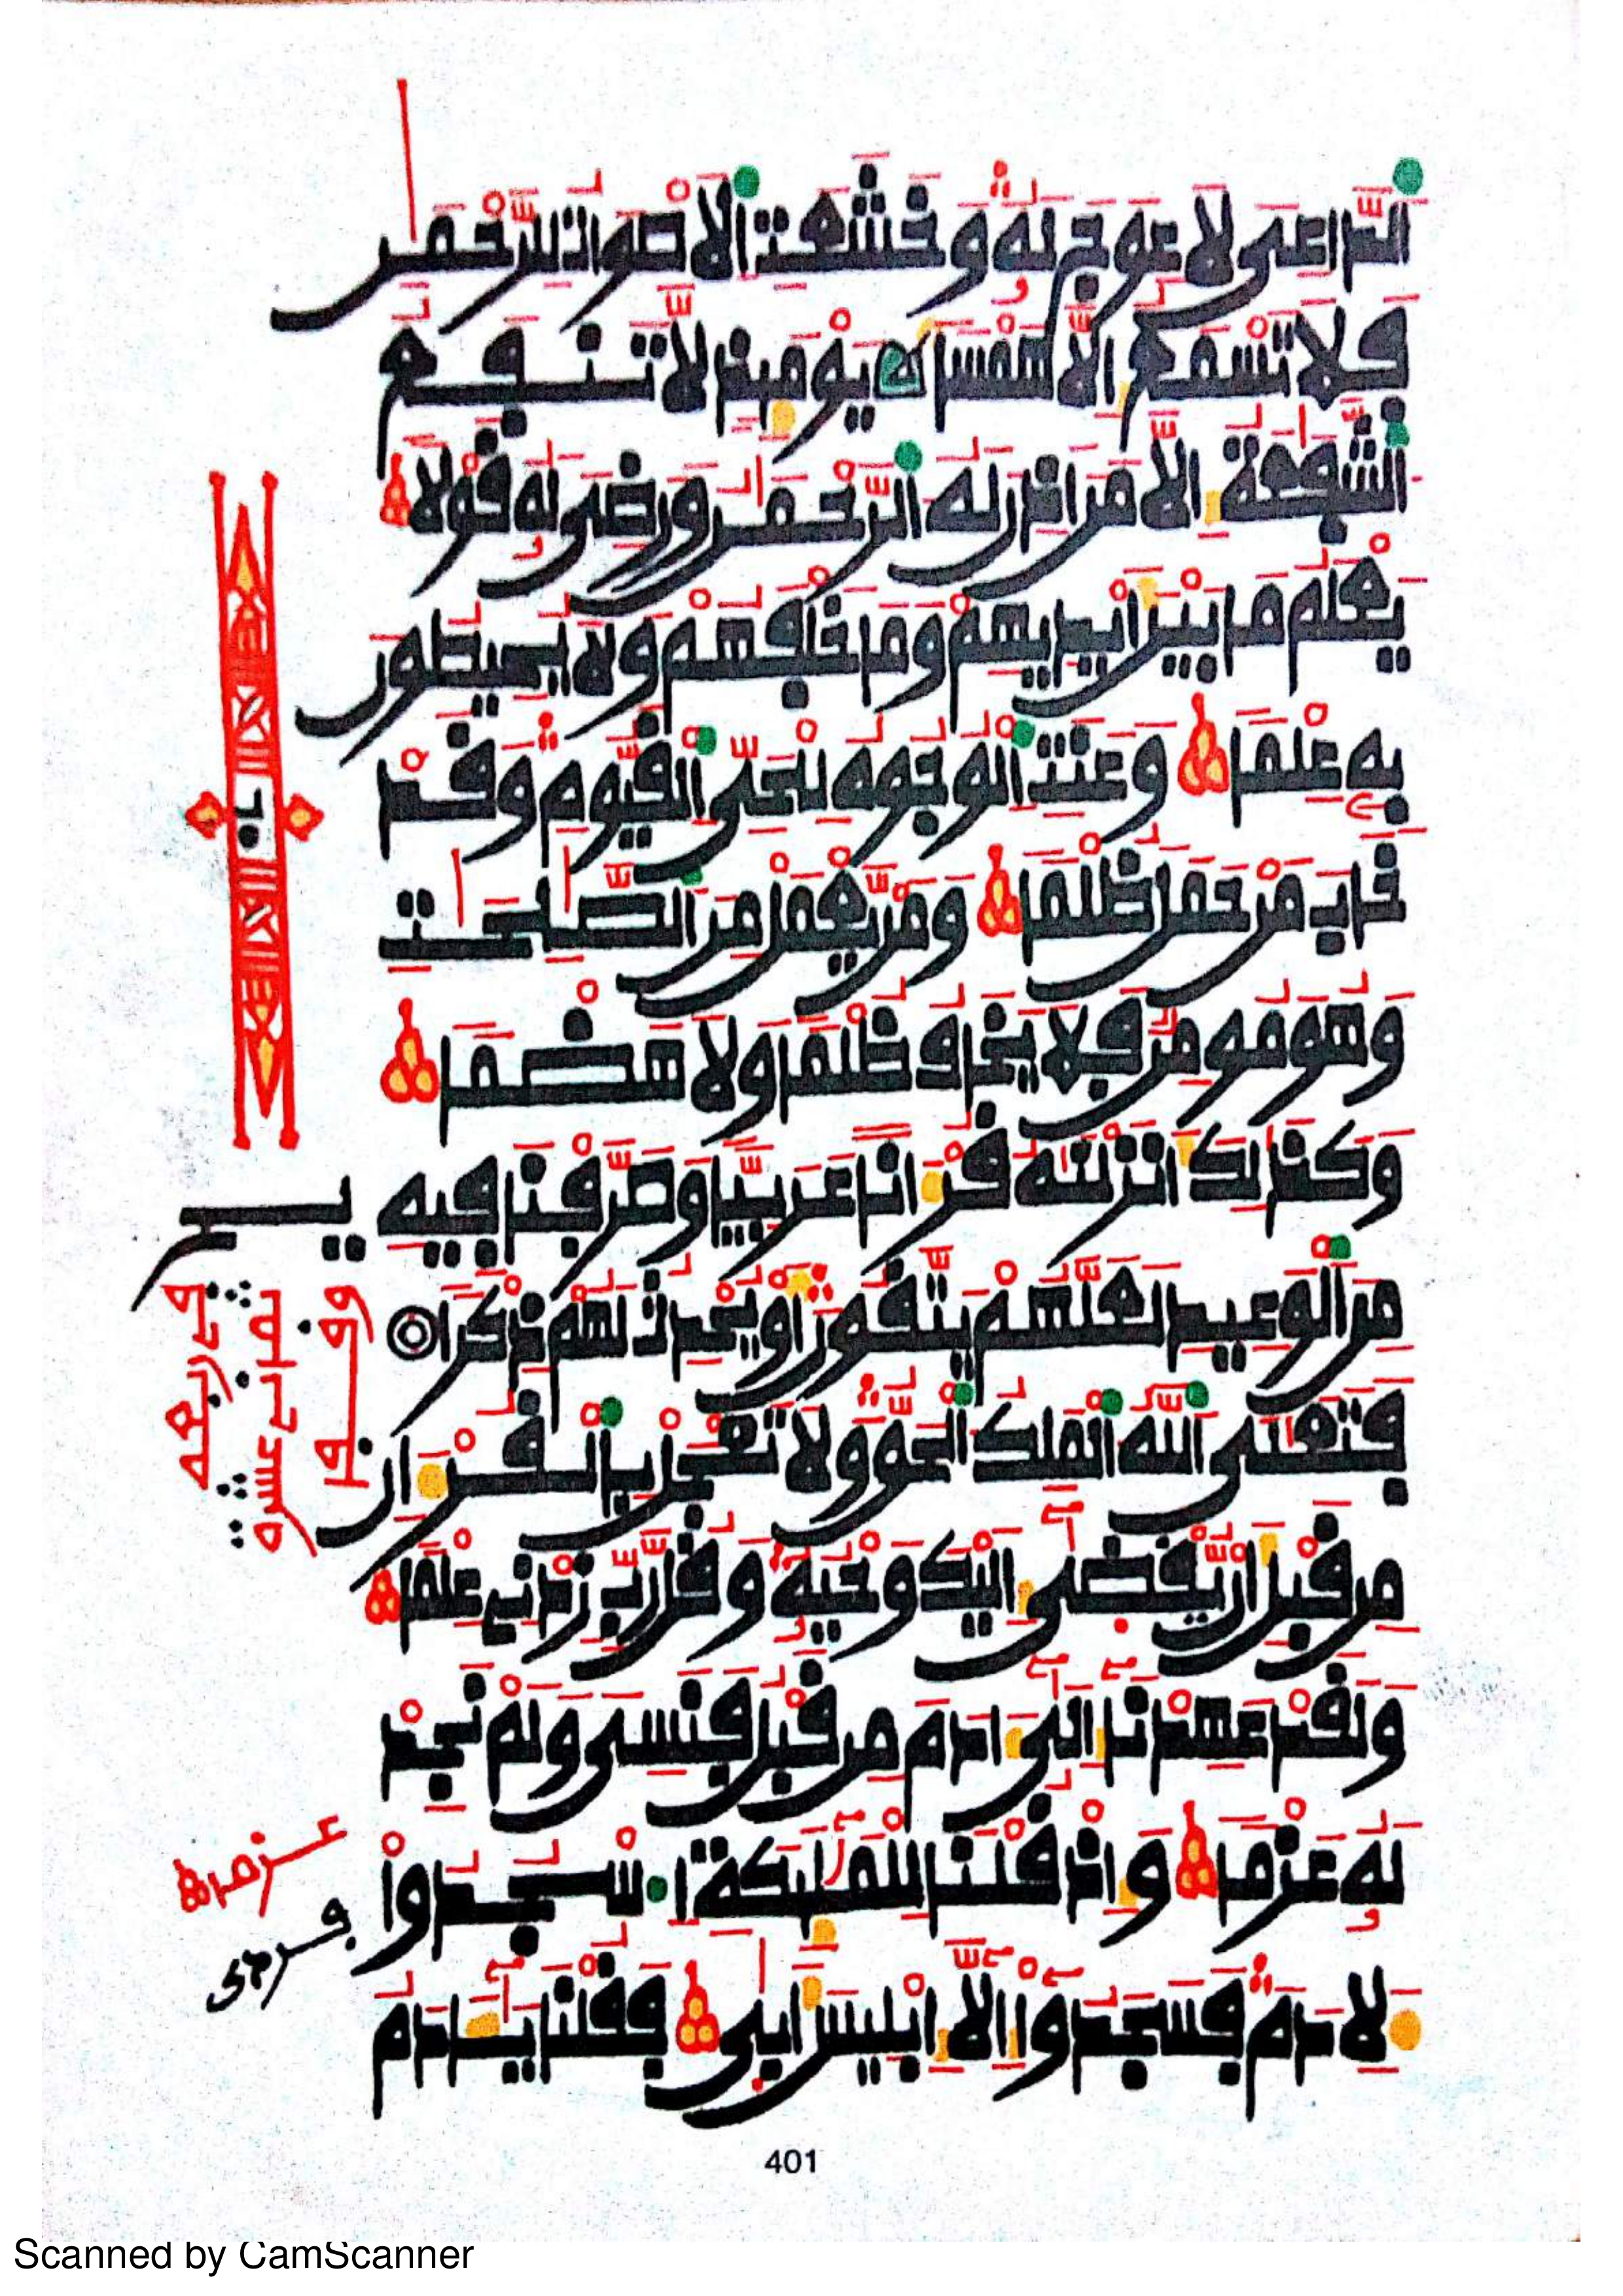 الداعى لا عوج له و خشعت الاصوات للرحمن
فلا تسمع الا همسا يومئذ لا تنفع
الشفعة الا من اذن له الرحمن ورضى له قولا
يعلم ما بين ايديهم وما خلفهم ولا يحيطون
به علما وعنت الوجوه للحى القيوم وقد
خاب من حمل ظلما ومن يعمل من الصلحت
وهو مومن فلا يخاف ظلما ولا هضما
وكذلك انزلنه قرانا عربيا وصرفنا فيه
من الوعيد لعلهم يتقون او يحدث لهم ذكرا
فتعلى الله الملك الحق ولا تعجل بالقران
من قبل ان يقضى اليك وحيه وقل رب زدنى علما
ولقد عهدنا الى ادم من قبل فنسى ولم نجد
له عزما واذ قلنا للمليكة اسجدوا
لادم فسجدوا الا ابليس ابى فقلنا يادم
عزما
401
Scanned by CamScanner